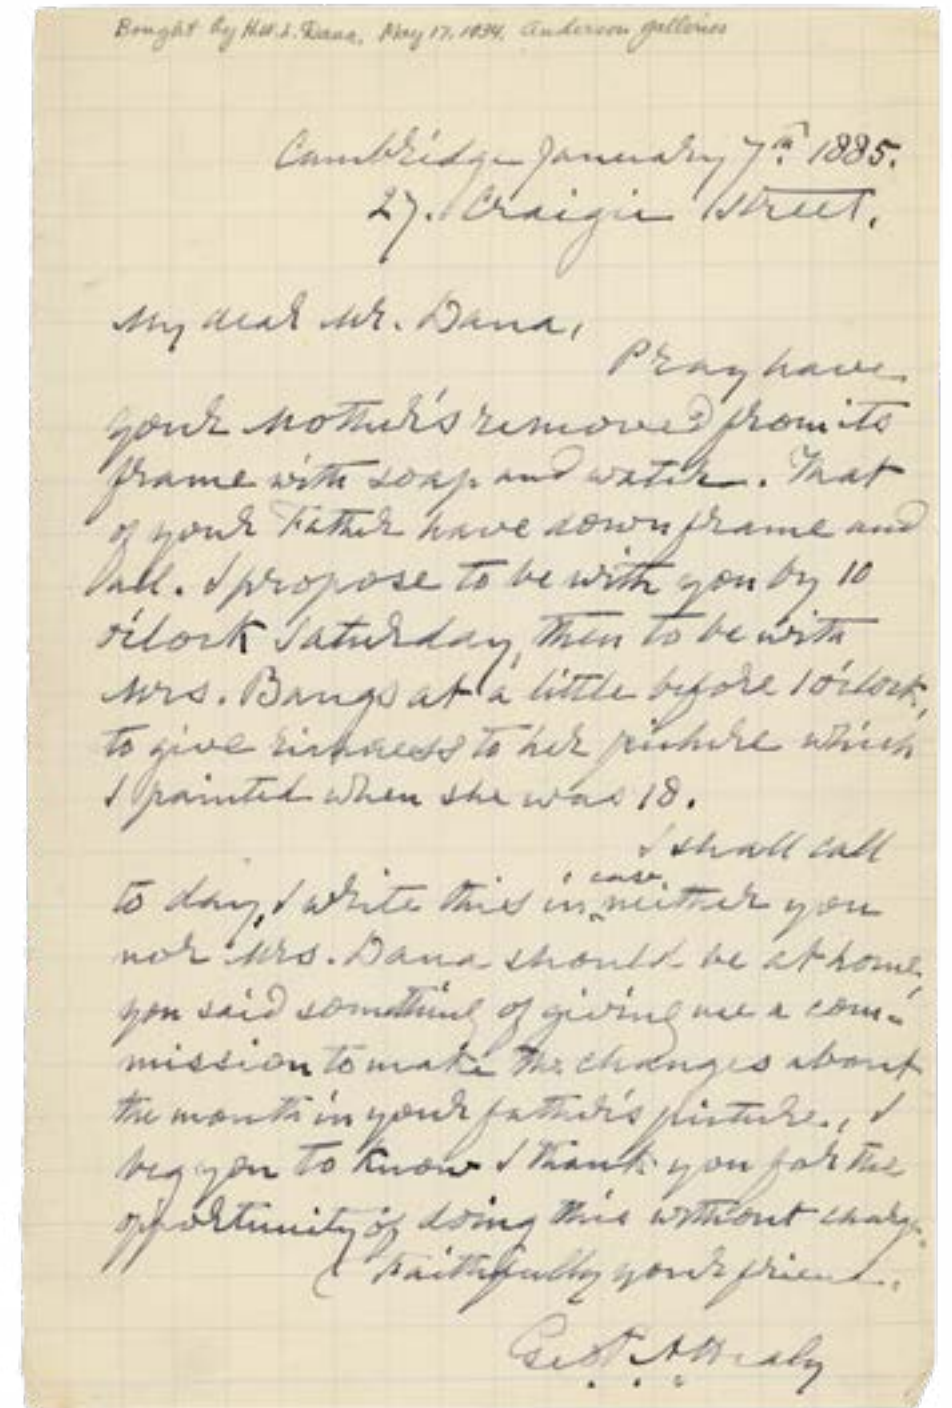 Bought by H.W.L. Dana, May 17, 1934, Anderson galleries
Cambridge January 7th. 1885.
27. Craigie Street.
My dear Mr. Dana,
Pray have
your Mother's removed from its
frame with soap and water. That
of your Father have down frame and
all. I propose to be with you by 10
o'clock Saturday, then to be with
Mrs. Bangs at a little before 1 o'clock,
to give to her picture which
I painted when she was 18.
I shall call
to day, I write this in case neither you
nor Mrs. Dana should be at home,
you said something of giving me a com-
mission to make the changes about
the mouth in your father's picture., I
beg you to know I thank you for the
opportunity of doing this without charge.
Faithfully your friend.
Geo. P. A. Healy